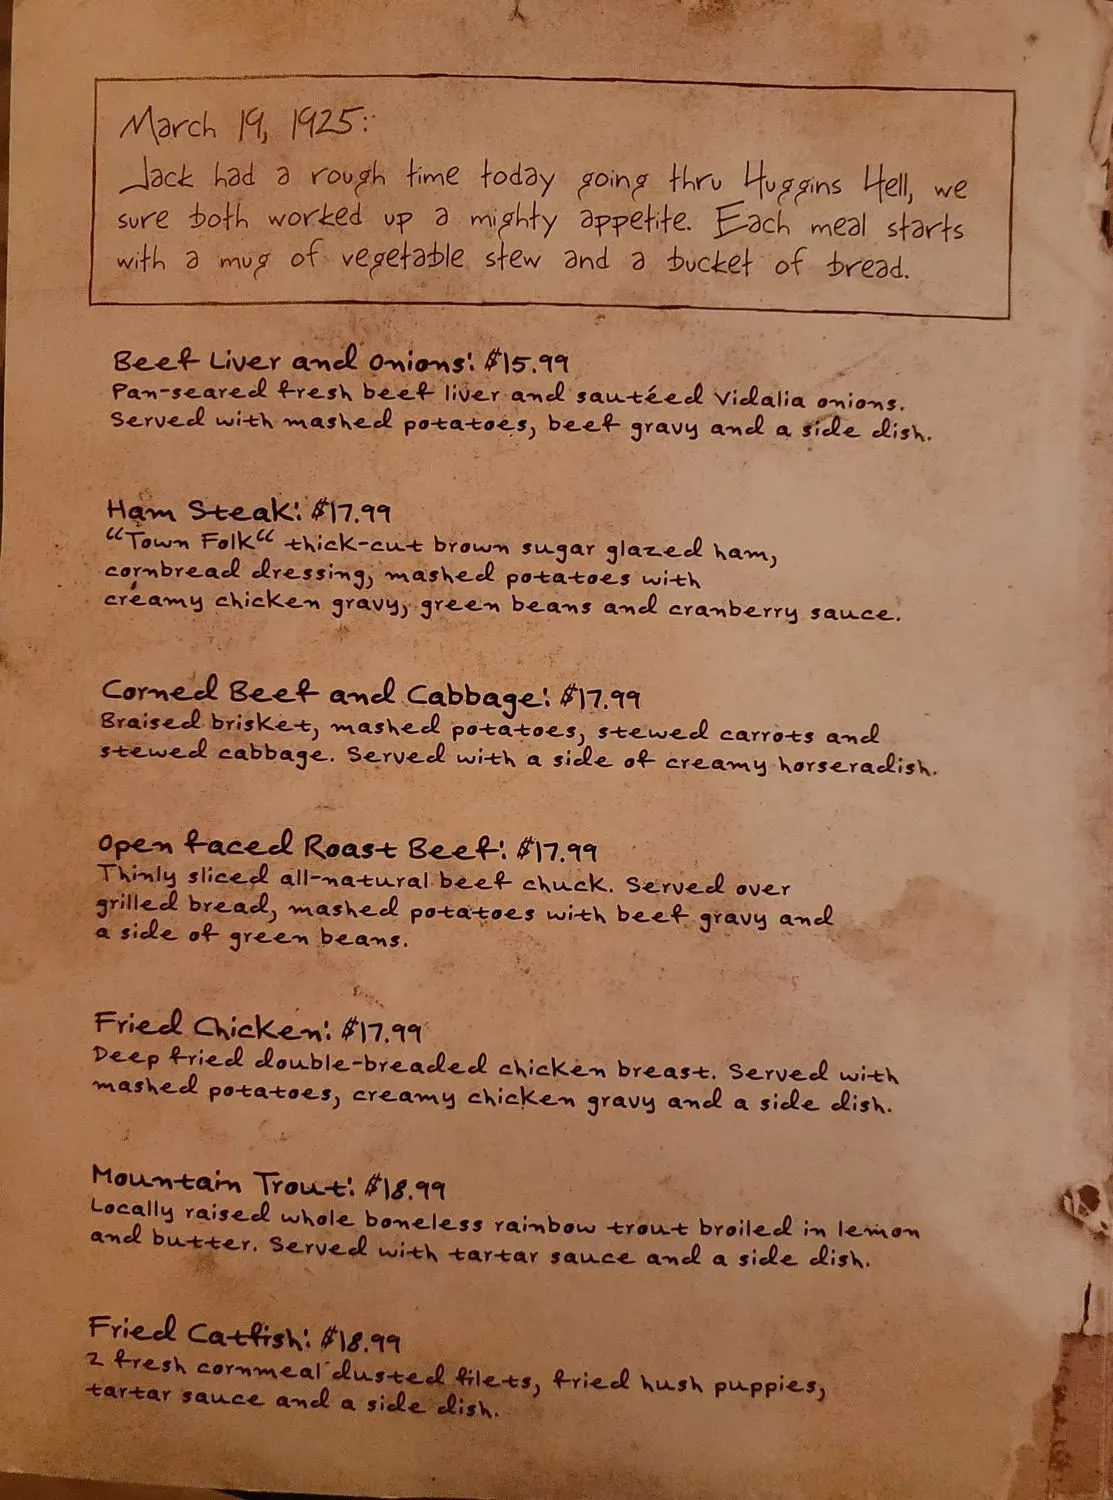 March 19, 1925:
Jack had a rough time today going thru Huggins Hell, we
sure both worked up a mighty appetite. Each meal starts
with a mug of vegetable stew and a bucket of bread.
Beef Liver and Onions: $15.99
Pan-seared fresh beef liver and sautéed Vidalia onions.
Served with mashed potatoes, beef gravy and a side dish.
Ham Steak: $17.99
“Town Folk“ thick-cut brown sugar glazed ham,
cornbread dressing, mashed potatoes with
creamy chicken gravy, green beans and cranberry sauce.
Corned Beef and Cabbage: $17.99
Braised brisket, mashed potatoes, stewed carrots and
stewed cabbage. Served with a side of creamy horseradish.
Open faced Roast Beef: $17.99
Thinly sliced all-natural beef chuck. Served over
grilled bread, mashed potatoes with beef gravy and
a side of green beans.
Fried Chicken: $17.99
Deep fried double-breaded chicken breast. Served with
mashed potatoes, creamy chicken gravy and a side dish.
Mountain Trout: $18.99
Locally raised whole boneless rainbow trout broiled in lemon
and butter. Served with tartar sauce and a side dish.
Fried Catfish: $18.99
2 fresh cornmeal dusted filets, fried hush puppies,
tartar sauce and a side dish.